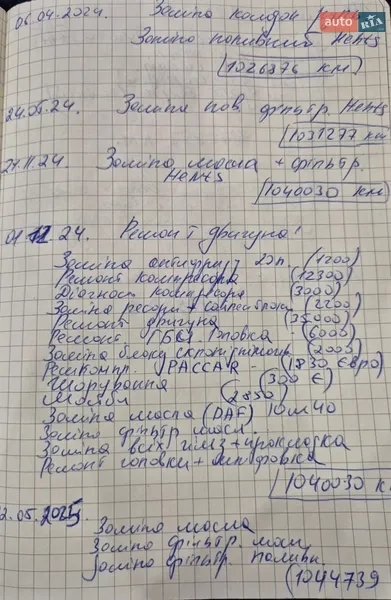 auto RIA
06.04.2024. Заміна колодок
Заміна паливний Hents
1026376 км
24.05.24. Заміна пов. фільтр. Hents
1031277 км
Заміна масла + фільтр.
Hents
1040030 км
01 12 24. Ремонт двигуна!
Заміна антифриз (1200)
Ремонт компресора (12300)
Діагност компресора (3000)
Заміна ресори + (2200)
Ремонт двигуна (35000)
Ремонт ГБЦ (6000)
Заміна блоку (2000)
РАССАR - (1830 євро)
(300 €)
(2850)
Заміна масла (DAF) 10w40
Заміна фільтр масл.
Заміна всіх гільз + прокладка
Ремонт головки + шліфовка
1040030 к
2.05.2025
Заміна масла
Заміна фільтр. масл
Заміна фільтр. палив
(1044739